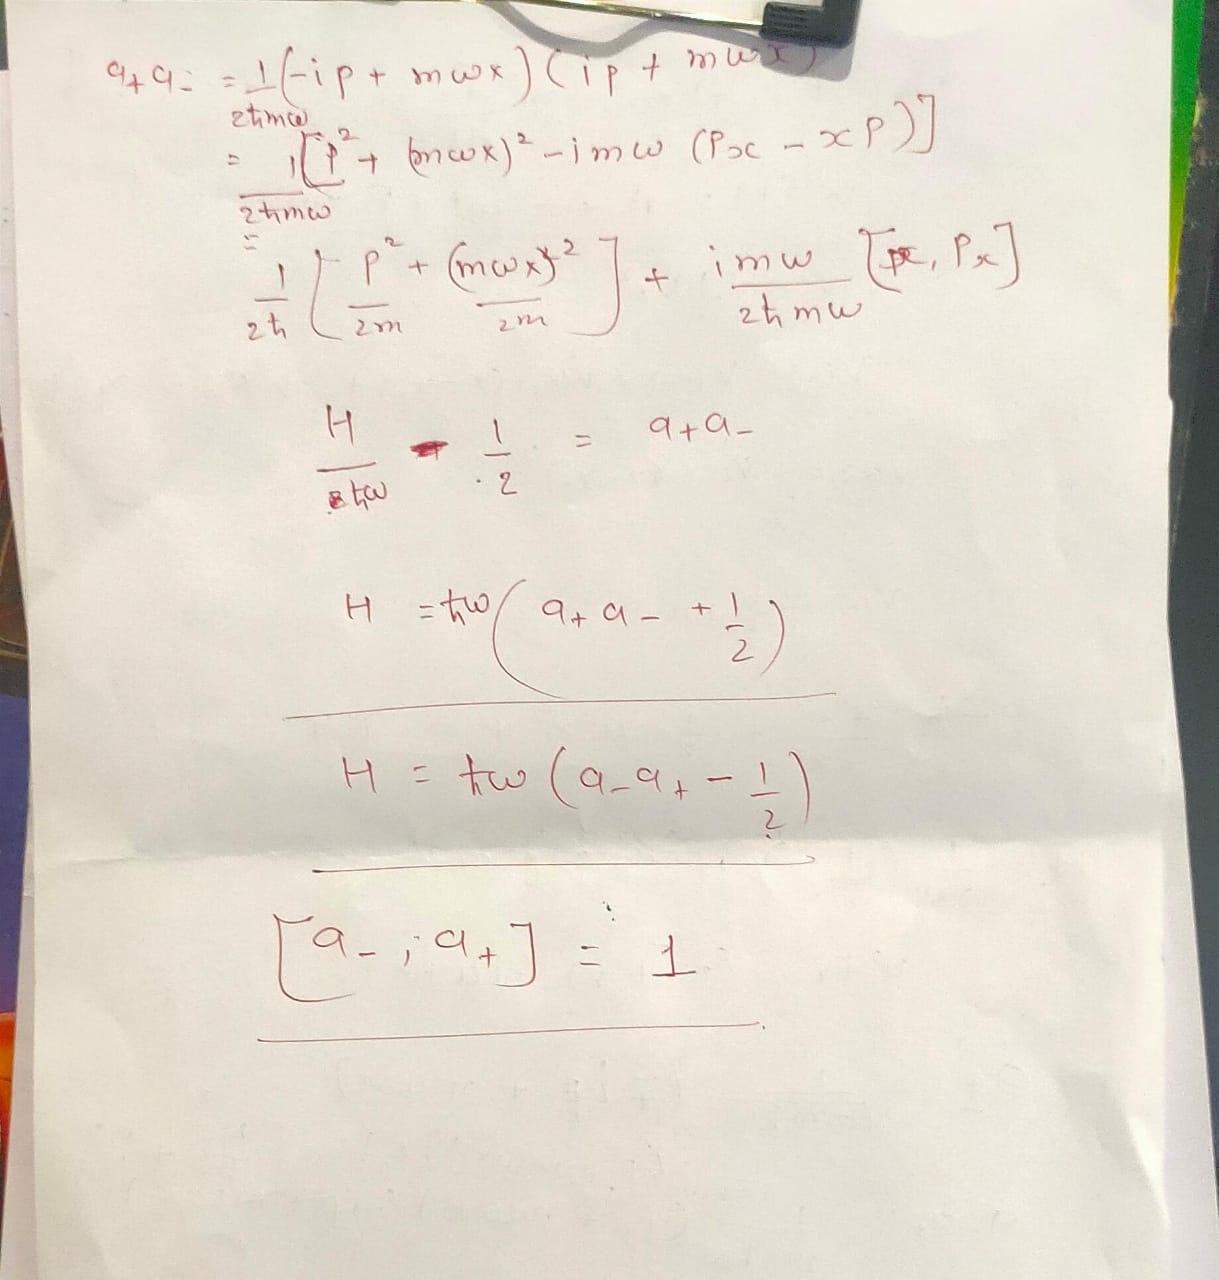 a₊a₋ = 1/2ħmω (-ip + mωx)(ip + mωx)
= 1/2ħmω [p² + (mωx)² - imω (px - xp)]
= 1/2ħ [p²/2m + (mωx)²/2m] + imω/2ħmω [x, Px]
H/ħω - 1/2 = a₊a₋
H = ħω(a₊a₋ + 1/2)
H = ħω(a₋a₊ - 1/2)
[a₋, a₊] = 1